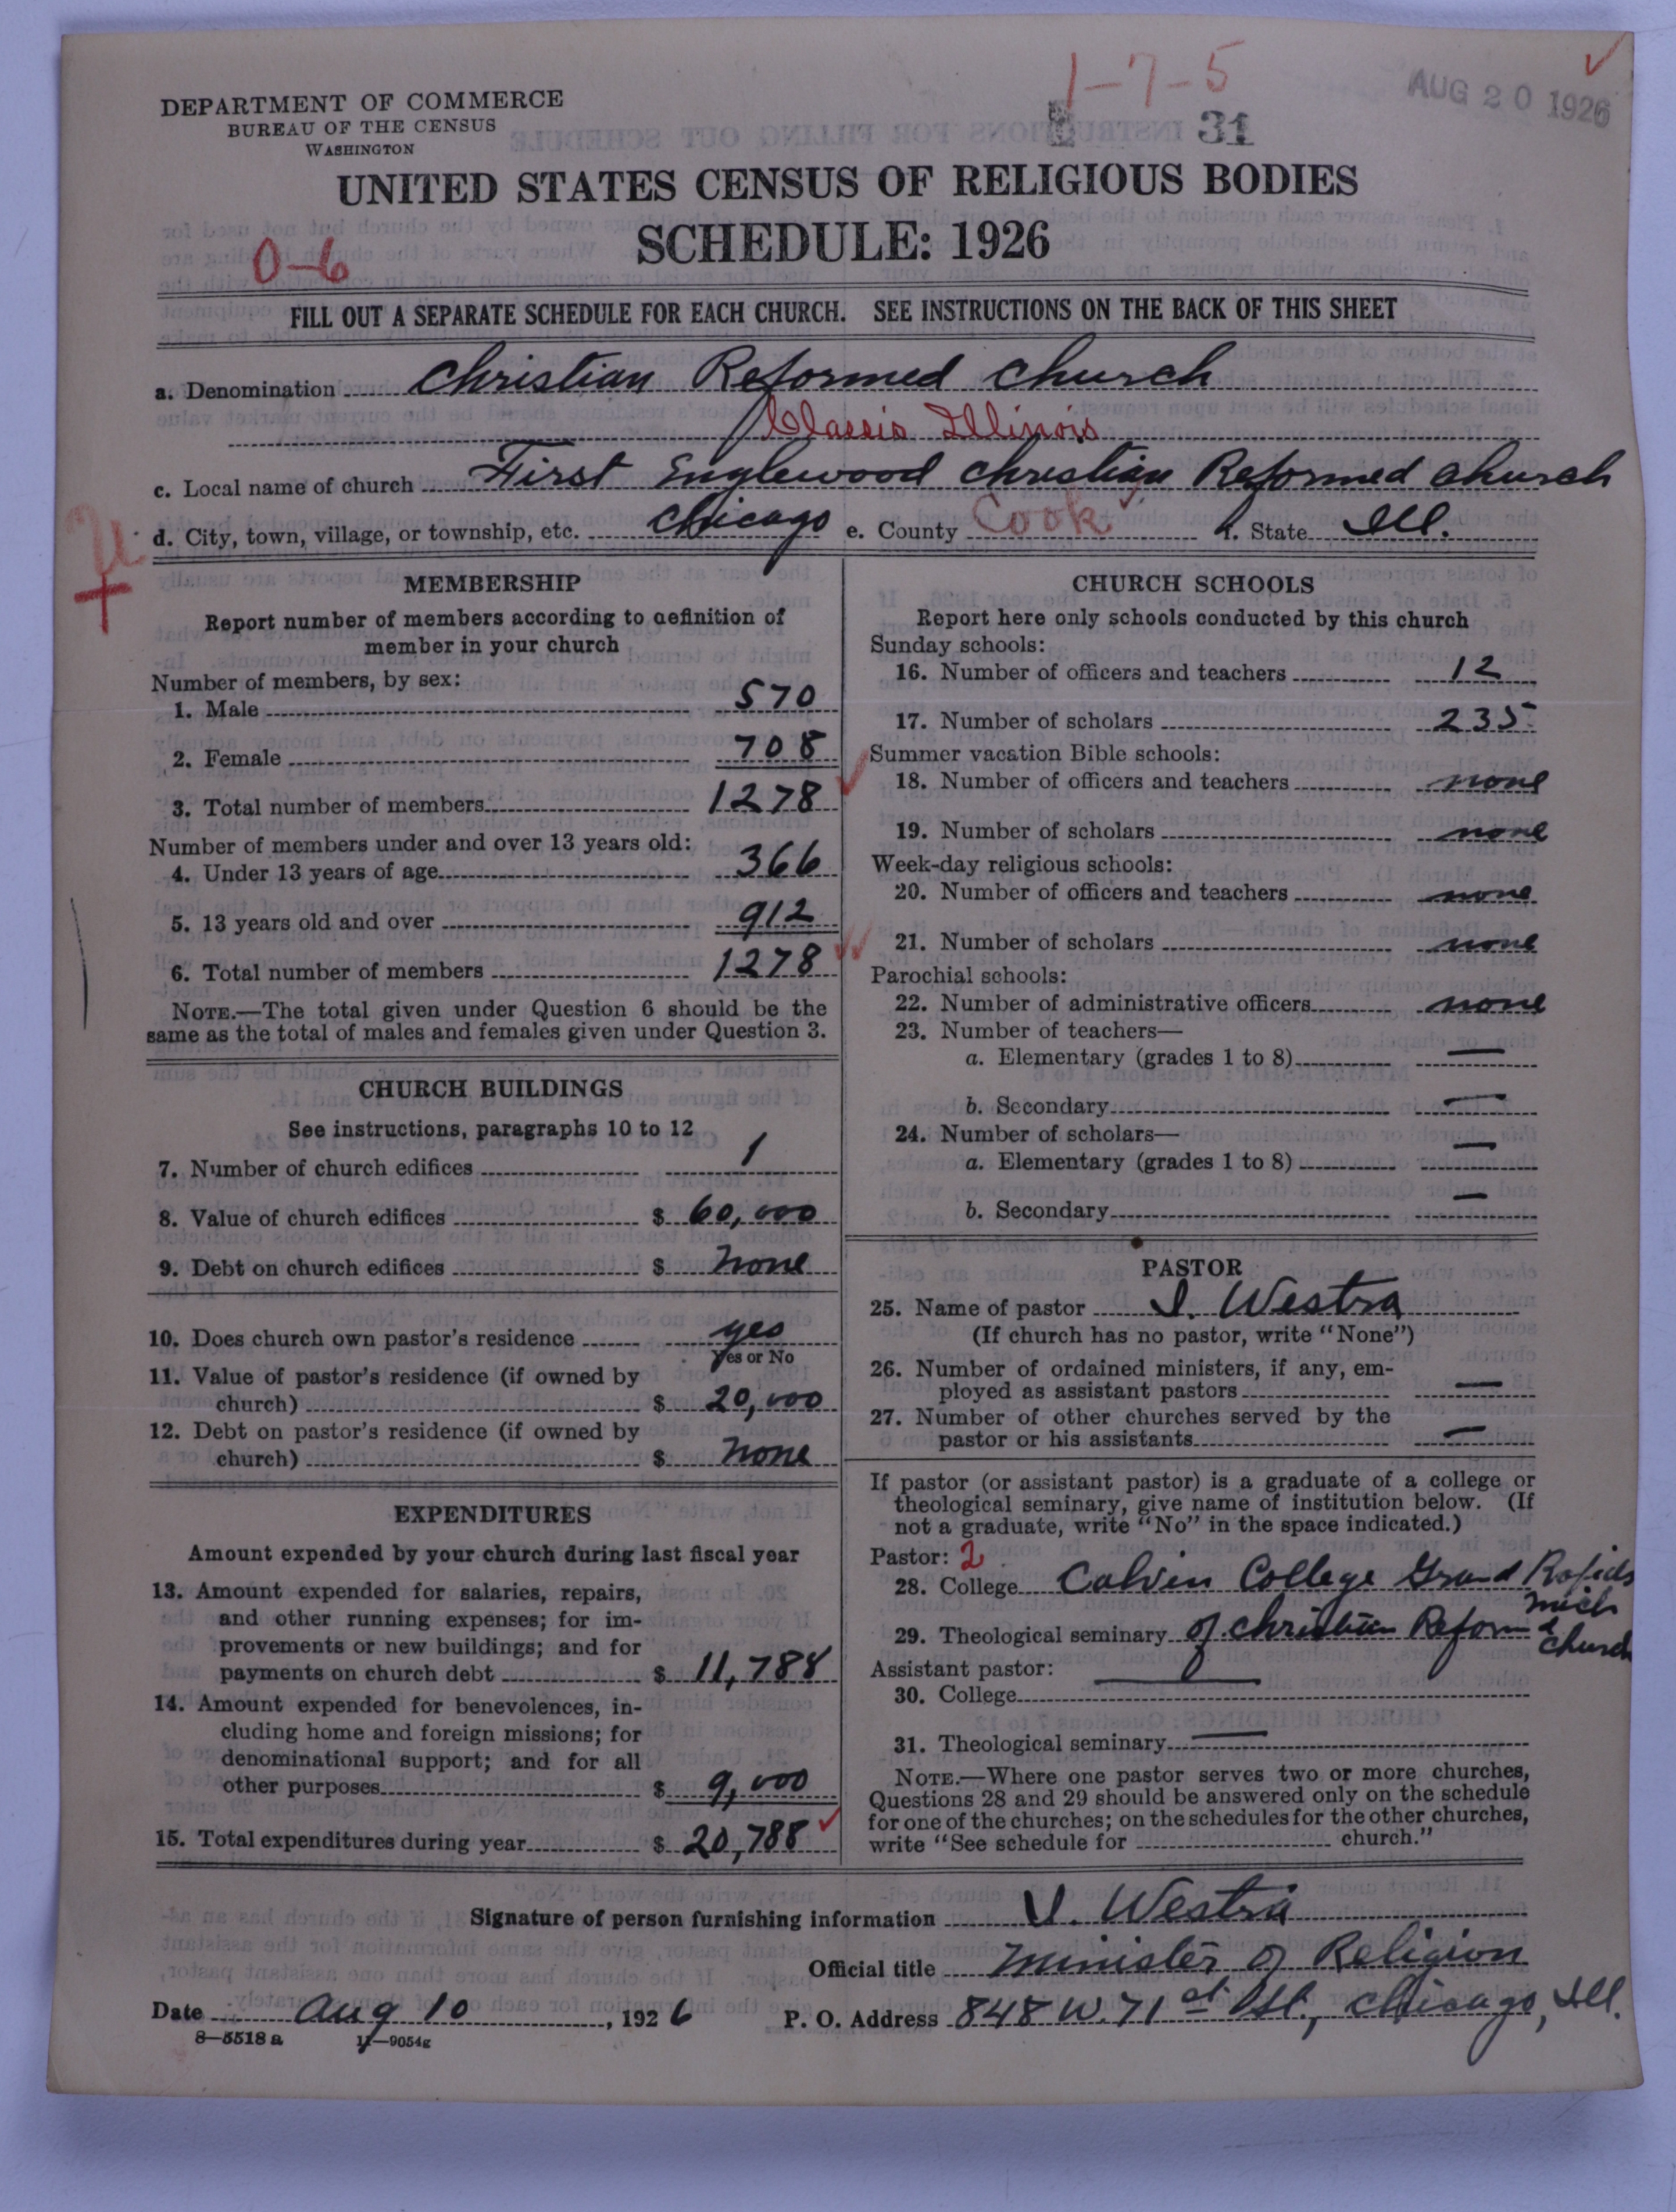 1-7-5
AUG 20 1926
31
DEPARTMENT OF COMMERCE
BUREAU OF THE CENSUS
WASHINGTON
UNITED STATES CENSUS OF RELIGIOUS BODIES
SCHEDULE: 1926
0-6
FILL OUT A SEPARATE SCHEDULE FOR EACH CHURCH. SEE INSTRUCTIONS ON THE BACK OF THIS SHEET
a. Denomination Christian Reformed Church
Classis Illinois
c. Local name of church First Englewood Christian Reformed Church
d. City, town, village, or township, etc. Chicago e. County Cook f. State Ill.
MEMBERSHIP
Report number of members according to definition of
member in your church
Number of members, by sex:
1. Male 570
2. Female 708
3. Total number of members 1278
Number of members under and over 13 years old:
4. Under 13 years of age 366
5. 13 years old and over 912
6. Total number of members 1278
NOTE.—The total given under Question 6 should be the
same as the total of males and females given under Question 3.
CHURCH BUILDINGS
See instructions, paragraphs 10 to 12
7. Number of church edifices 1
8. Value of church edifices $ 60,000
9. Debt on church edifices $ none
10. Does church own pastor's residence yes
Yes or No
11. Value of pastor's residence (if owned by
church) $ 20,000
12. Debt on pastor's residence (if owned by
church) $ none
EXPENDITURES
Amount expended by your church during last fiscal year
13. Amount expended for salaries, repairs,
and other running expenses; for im-
provements or new buildings; and for
payments on church debt $ 11,788
14. Amount expended for benevolences, in-
cluding home and foreign missions; for
denominational support; and for all
other purposes $ 9,000
15. Total expenditures during year $ 20,788
CHURCH SCHOOLS
Report here only schools conducted by this church
Sunday schools:
16. Number of officers and teachers 12
17. Number of scholars 235
Summer vacation Bible schools:
18. Number of officers and teachers none
19. Number of scholars none
Week-day religious schools:
20. Number of officers and teachers none
21. Number of scholars none
Parochial schools:
22. Number of administrative officers none
23. Number of teachers—
a. Elementary (grades 1 to 8) —
b. Secondary —
24. Number of scholars—
a. Elementary (grades 1 to 8) —
b. Secondary —
PASTOR
25. Name of pastor I. Westra
(If church has no pastor, write "None")
26. Number of ordained ministers, if any, em-
ployed as assistant pastors —
27. Number of other churches served by the
pastor or his assistants —
If pastor (or assistant pastor) is a graduate of a college or
theological seminary, give name of institution below. (If
not a graduate, write "No" in the space indicated.)
Pastor: 2
28. College Calvin College Grand Rapids
Mich
29. Theological seminary of Christian Reformed
Church
Assistant pastor: —
30. College
31. Theological seminary —
NOTE.—Where one pastor serves two or more churches,
Questions 28 and 29 should be answered only on the schedule
for one of the churches; on the schedules for the other churches,
write "See schedule for church."
Signature of person furnishing information I. Westra
Official title Minister of Religion
Date Aug 10, 1926 P. O. Address 848 W. 71st St., Chicago, Ill.
8—5518 a 11—9054g